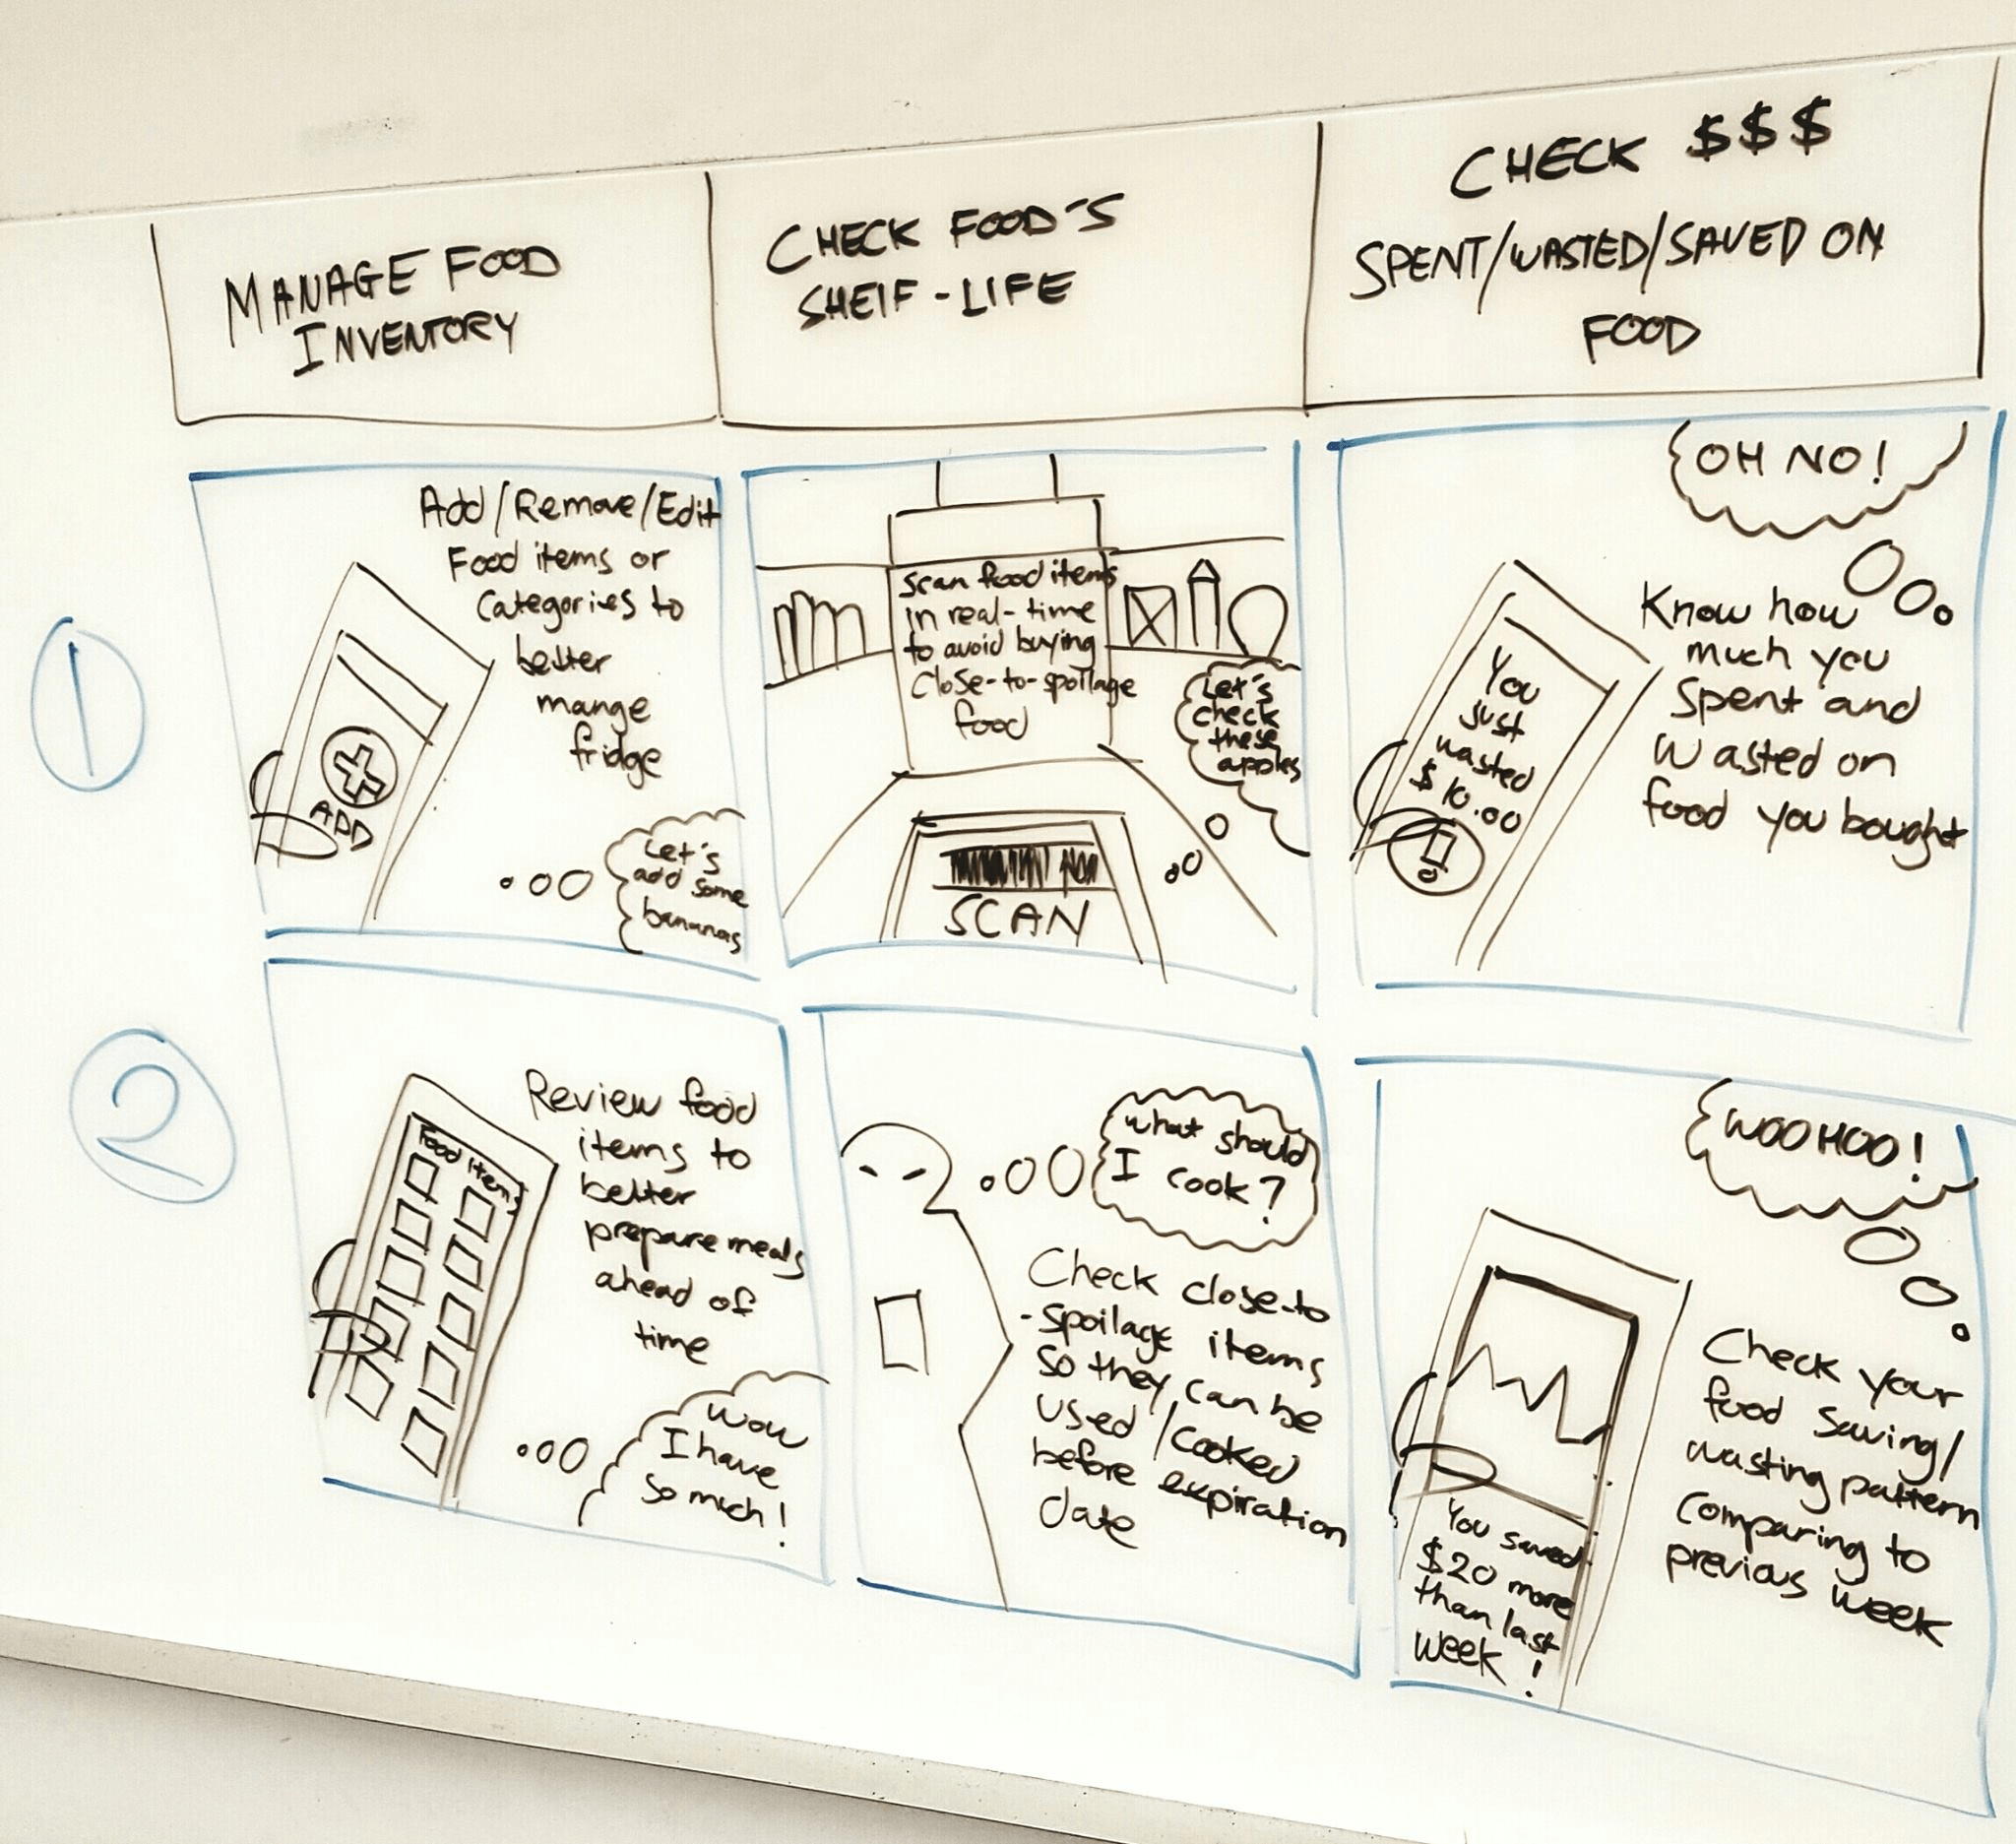 MANAGE FOOD
INVENTORY
CHECK FOOD'S
SHElF-LIFE
CHECK $$$
SPENT/WASTED/SAVED ON
FOOD
1
Add/Remove/Edit
Food items or
Categories to
better
mange
fridge
ADD
Let's
add some
bananas
Scan food items
in real-time
to avoid buying
close-to-spoilage
food
Let's
check
these
apples
SCAN
OH NO!
Know how
much you
spent and
wasted on
food you bought
You
just
wasted
$10.00
!
2
Review food
items to
better
prepare meals
ahead of
time
Food items
wow
I have
so much!
what should
I cook?
Check close-to
-spoilage items
so they can be
used/cooked
before expiration
date
WOOHOO!
Check your
food saving/
wasting pattern
comparing to
previous week
You saved
$20 more
than last
week!